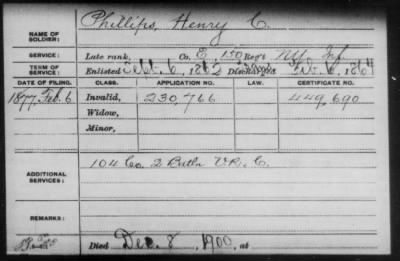 NAME OF SOLDIER: Phillips, Henry C.
SERVICE: Late rank, Co. E 150 Reg't NY Inf
TERM OF SERVICE: Enlisted Sept. 6, 1862 Discharged Feb. 6, 1864
DATE OF FILING. CLASS. APPLICATION NO. LAW. CERTIFICATE NO.
1877, Feb. 6 Invalid, 230,766 449,690
Widow,
Minor,
ADDITIONAL SERVICES: 104 Co. 2 Batln V.R.C.
REMARKS:
Died Dec. 8, 1900, at